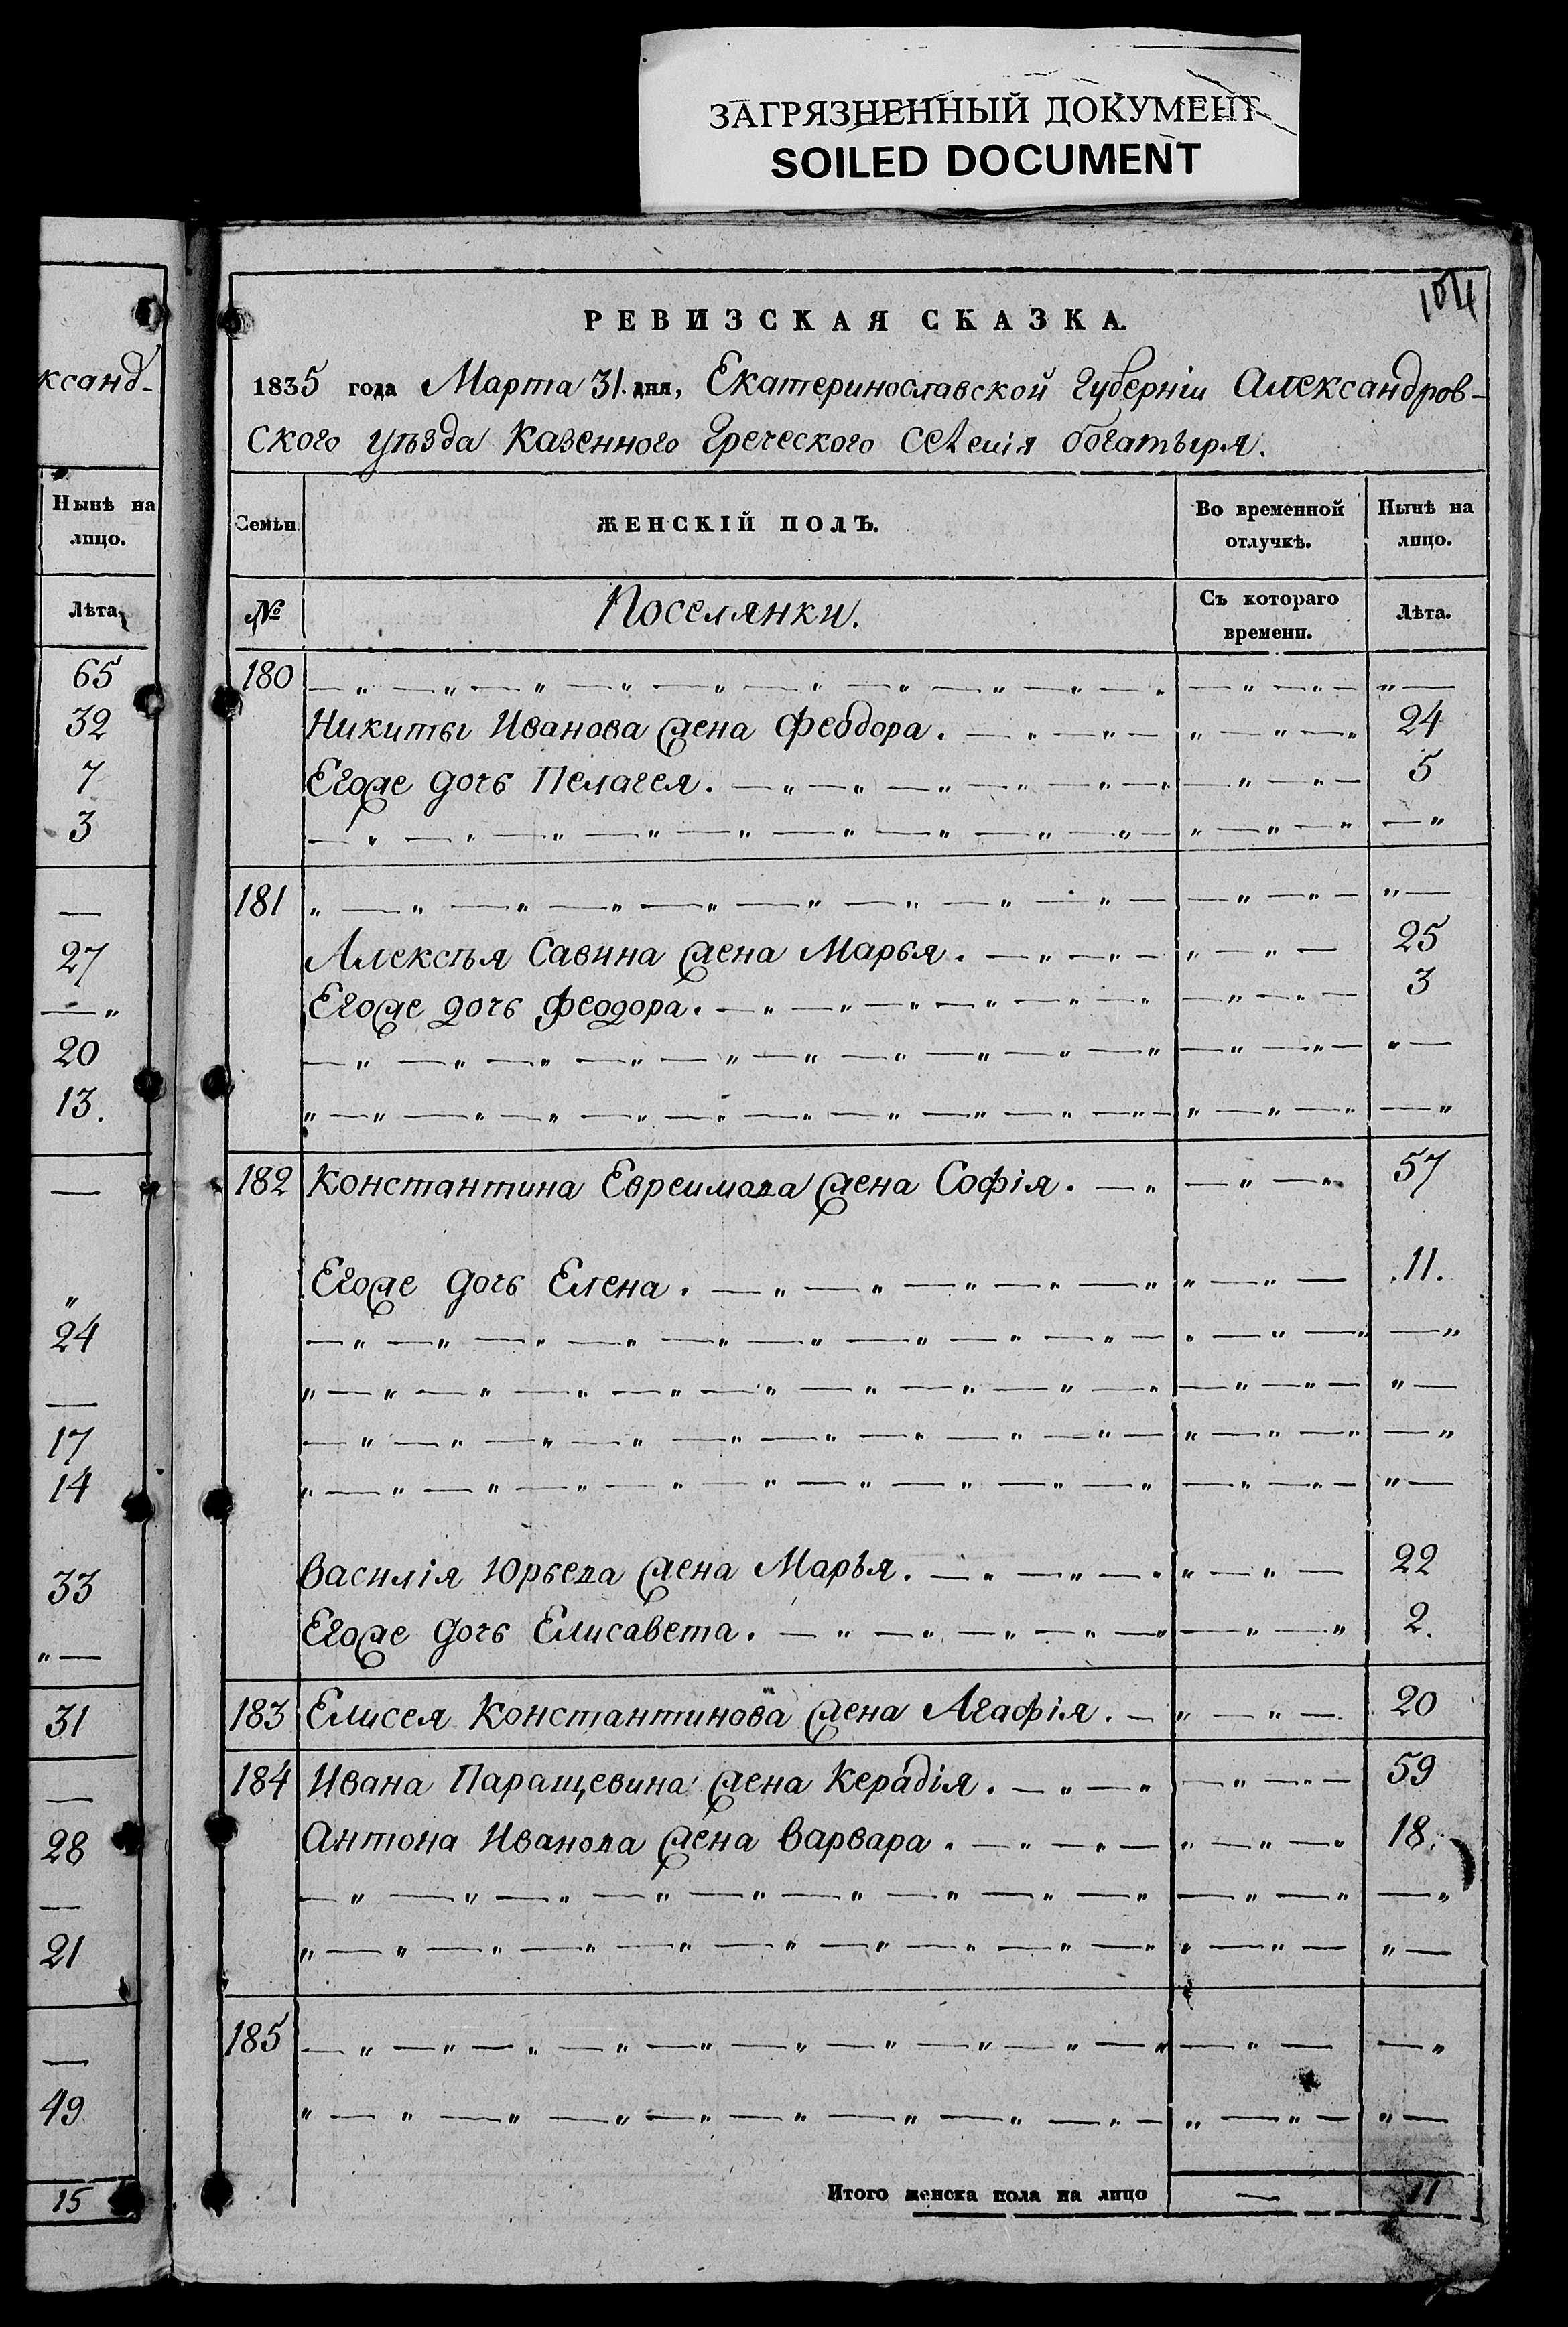 ЗАГРЯЗНЕННЫЙ ДОКУМЕНТ
SOILED DOCUMENT
ксанд-
Нынѣ на
лицо.
Лѣта
65
32
7
3
—
27
— „
20
13.
—
„
24
—
17
14
33
„ —
31
—
28
—
21
—
49
15
104
РЕВИЗСКАЯ СКАЗКА.
1835 года Марта 31. дня, Екатеринославской Губерніи Александров-
ского уѣзда Казенного Греческого Селенія Богатыря.
Семьи ЖЕНСКІЙ ПОЛЪ. Во временной отлучкѣ. Нынѣ на лицо.
№ Поселянки. Съ котораго времени. Лѣта.
180 — „ — „ — „ —
Никиты Иванова жена Феодора. — „ — 24
Егоже дочь Пелагея. — „ — 5
— „ — „ — „
181 „ — „ — „ —
Алексѣя Савина жена Марья. — „ — 25
Егоже дочь Феодора. — „ — 3
— „ — „ — „ —
„ — „ — „ — „
182 Константина Евреимова жена Софія. — „ — 57
Егоже дочь Елена. — „ — .11.
— „ — „ — „
„ — „ — „ —
— „ — „ — „
„ — „ — „ —
Василія Юрьева жена Марья. — „ — 22
Егоже дочь Елисавета. — „ — 2.
183 Елисея Константинова жена Агафія. — „ — 20
184 Ивана Паращевина жена Керадія. — „ — 59
Антона Иванова жена Варвара. — „ — 18.
— „ — „ — „
„ — „ — „ —
185 — „ — „ — „
„ — „ — „ —
Итого женска пола на лицо — 11